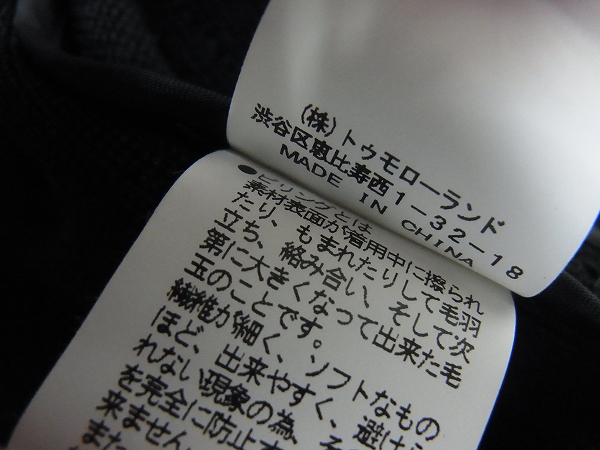 (株)トゥモローランド
渋谷区恵比寿西1-32-18
MADE IN CHINA
●ピリングとは
素材表面が着用中に擦られ
たり、もまれたりして毛羽
立ち、絡み合い、そして次
第に大きくなって出来た毛
玉のことです。
繊維が細く、ソフトなもの
ほど、出来やすく、避けら
れない現象の為、そ
を完全に防止
来ません
また